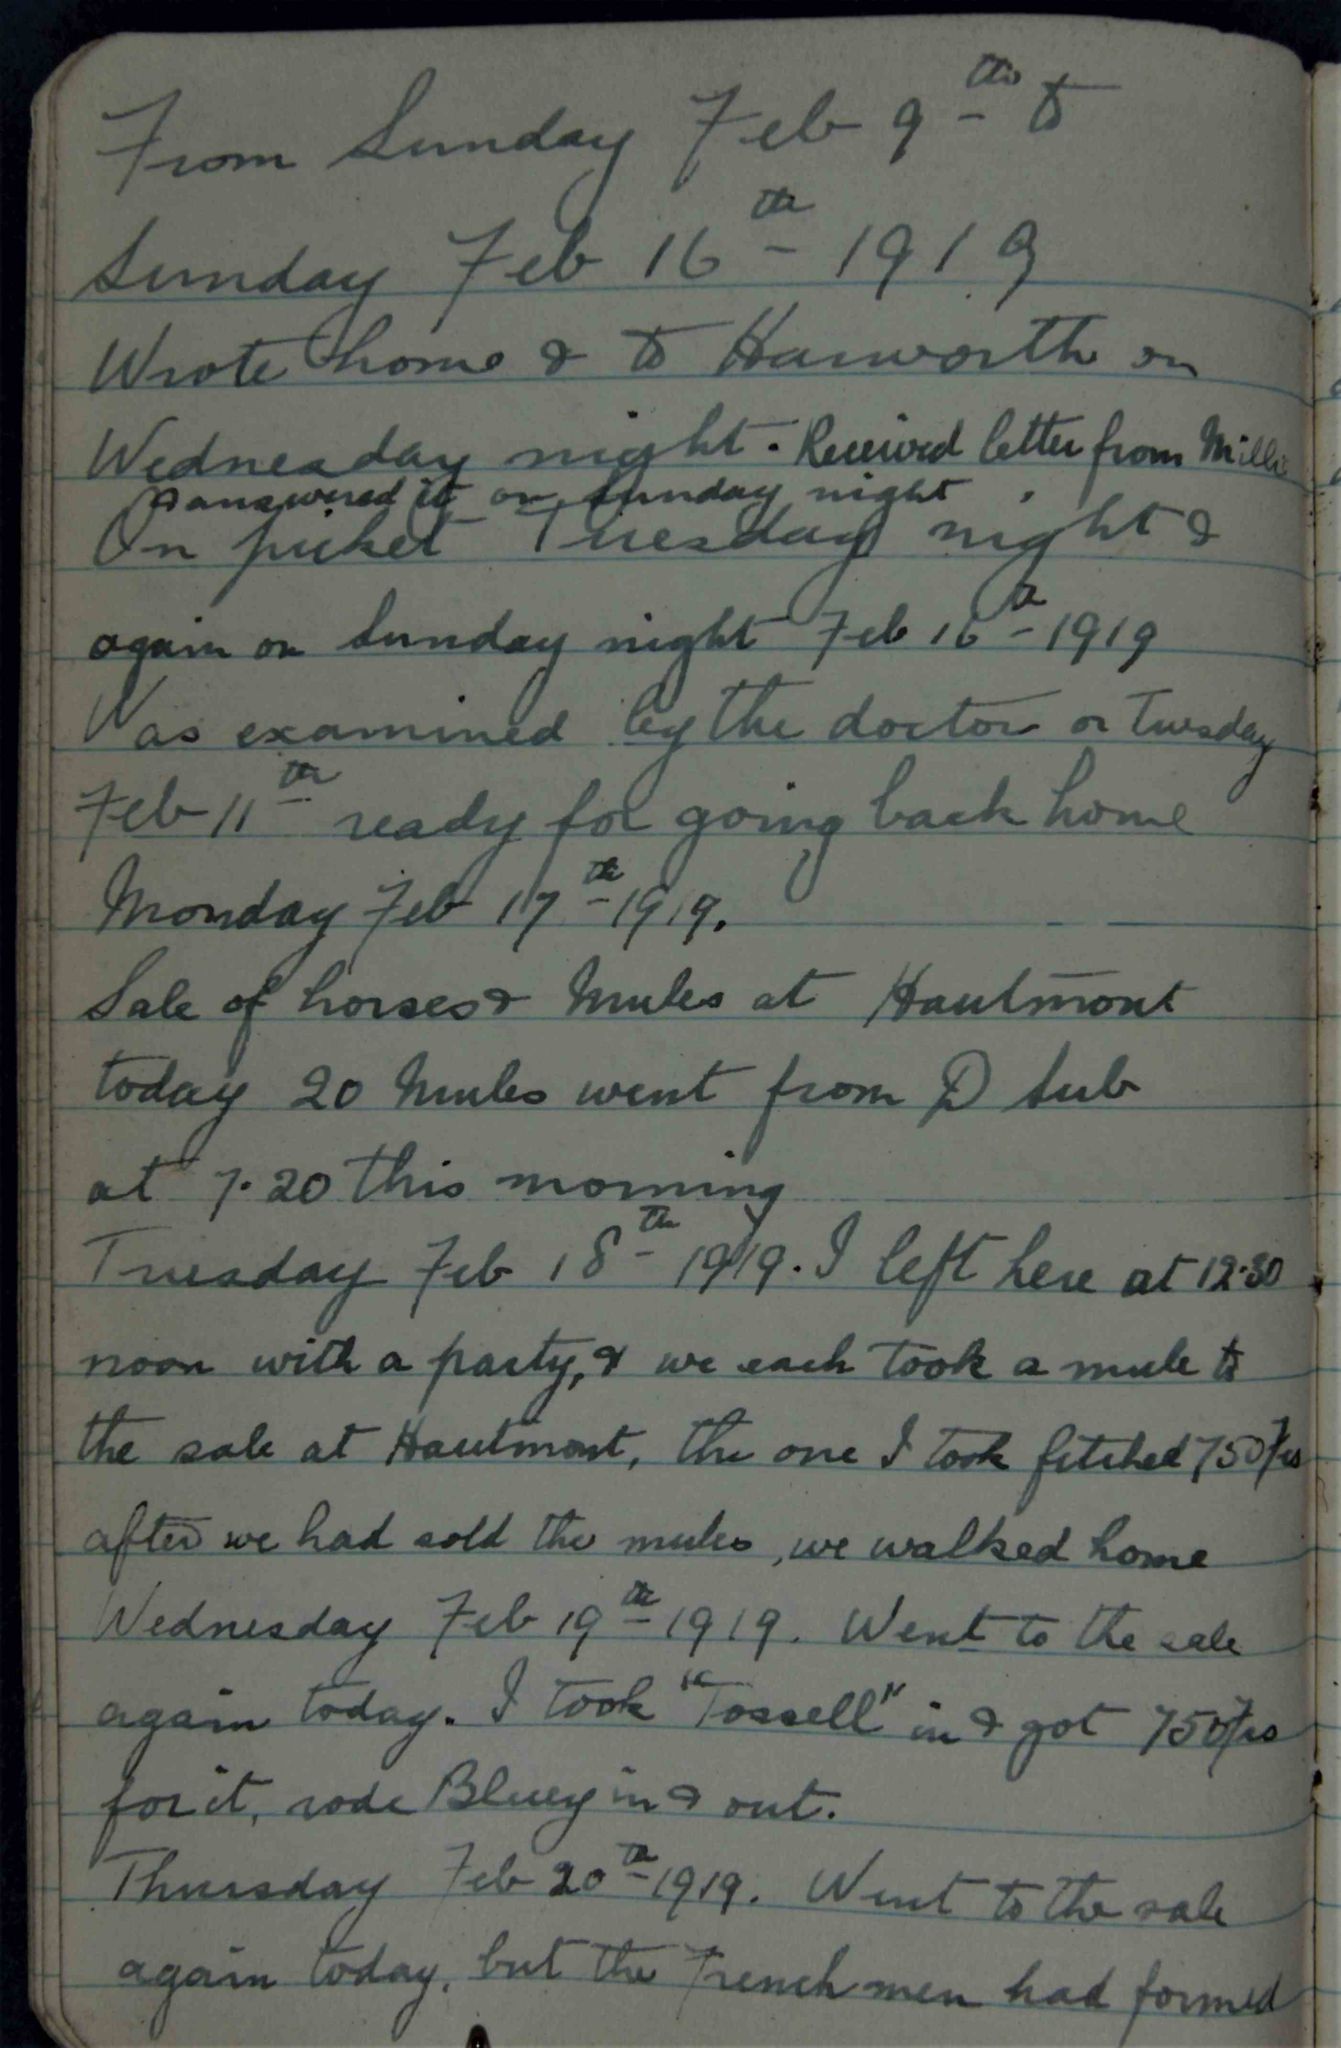 From Sunday Feb 9th to
Sunday Feb 16th 1919
Wrote home & to Harworth on
Wednesday night. Received letter from Millie
& answered it on Sunday night.
On picket Tuesday night &
again on Sunday night Feb 16th 1919
Was examined by the doctor on Tuesday
Feb 11th ready for going back home
Monday Feb 17th 1919.
Sale of horses & Mules at Hautmont
today 20 Mules went from D Sub
at 7.20 this morning
Tuesday Feb 18th 1919. I left here at 12.30
noon with a party, & we each took a mule to
the sale at Hautmont, the one I took fetched 750 frs
after we had sold the mules, we walked home
Wednesday Feb 19th 1919. Went to the sale
again today. I took "Tossell" in & got 750 frs
for it, rode Bluey in & out.
Thursday Feb 20th 1919. Went to the sale
again today, but the Frenchmen had formed